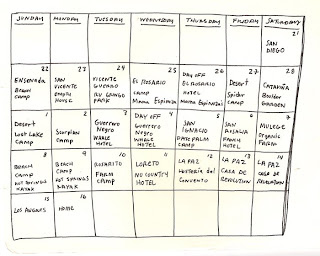 SUNDAY MONDAY TUESDAY WEDNESDAY THURSDAY FRIDAY SATURDAY
21
SAN
DIEGO
22 27 24 25 26 27 28
Ensenada SAN VICENTE EL ROSARIO DAY OFF Desert CATAVIÑA
Beach VICENTE GUERRERO camp EL ROSARIO Spider Boulder
camp EMPTY RV Mama Espinozas HOTEL Camp GARDEN
HOUSE PARK Mama Espinozas
1 2 3 4 5 6 7
Desert Scorpion Guerrero DAY OFF SAN SAN MULEGE
Lost Lake Camp Negro Guerrero IGNACIO ROSALIA ORGANIC
Camp WHALE Negro CAMP HOTEL FARM
HOTEL WHALE
HOTEL
8 9 10 11 12 13 14
BEACH BEACH ROSARITO LORETO LA PAZ LA PAZ LA PAZ
CAMP CAMP FARM NO COUNTRY HOSTERIA del CASA DE CASA DE
HOT SPRINGS HOT SPRINGS CAMP HOTEL CONVENTO REVOLUTION REVOLUTION
KAYAK KAYAK
15 16
LOS ANGELES HOME